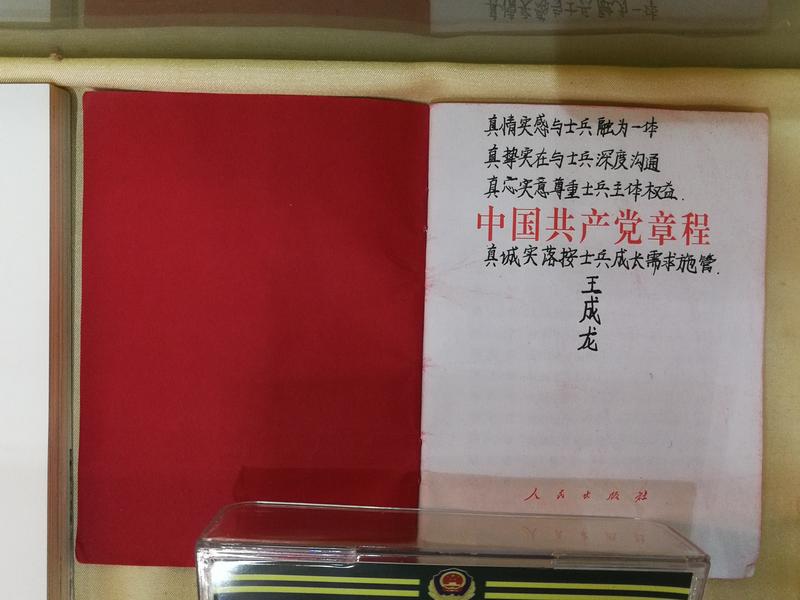 真情实感与士兵融为一体
真挚实在与士兵深度沟通
真心实意尊重士兵主体权益.
中国共产党章程
真诚实落按士兵成长需求施管.
王
成
龙
人民出版社